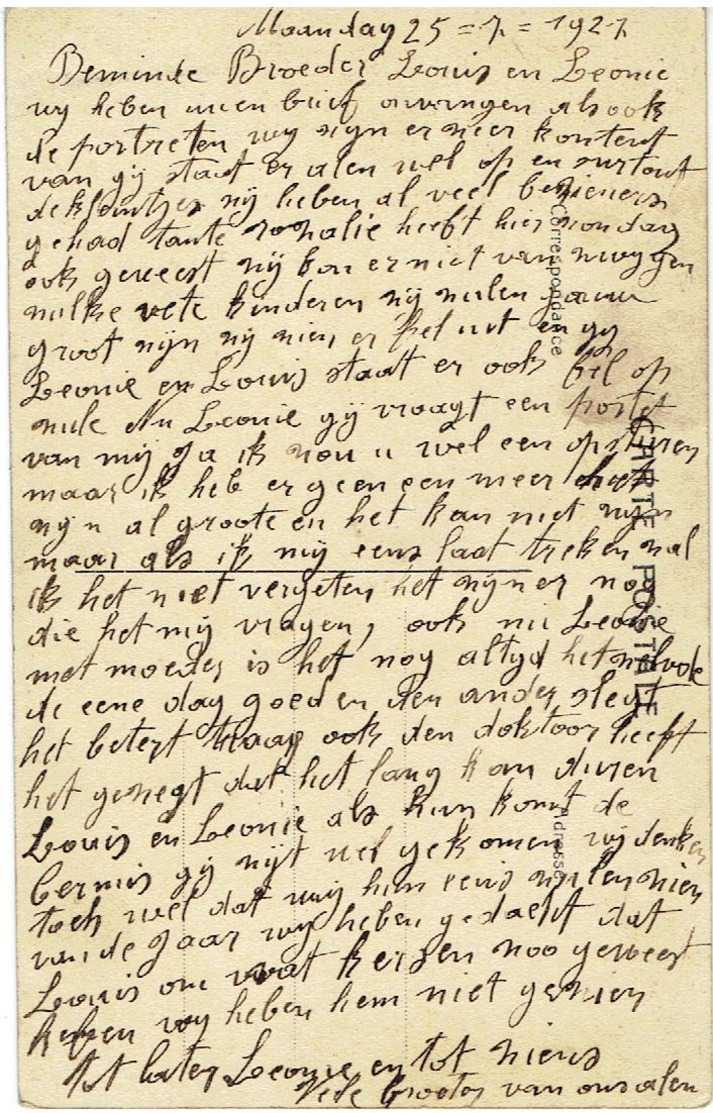 Maanday 25 = 7 = 1927
Beminde Broeder Louis en Leonie
wy heben uwen brief onvangen als ook
de portreten wy zyn er zeer kontent
van gij staat er alen wel op en surtout
de kleintjes zij heben al veel bezieners
gehad tante rozalie heeft hier zondag
ook geweest zij kon er niet van zwygen
zulke vete kinderen zij zulen gauw
groot zijn zij zien er kel uit en gij
Leonie en Louis staat er ook bil op
nu Leonie gij vraagt een portet
van mij ja ik zou u wel een opsturen
maar ik heb er geen een meer
zyn al groote en het kan niet zijn
maar als ik mij eens laat treken zal
ik het niet vergeten het zijn er nog
die het mij vragen, ook nu Leonie
met moeder is het nog altyd het zelvde
de eene dag goed en den ander slegt
het betert traag ook den doktoor heeft
het gezegt dat het lang kan duren
Louis en Leonie als kun komt de
kermis gij zijt wel gekomen wij denken
toch wel dat wij hun eens zulen zien
van de Jaar wy heben gedacht dat
Louis om wat kersen zoo geweest
heben wy heben hem niet gezien
tot later Leonie en tot ziens
Vele Groetes van ons alen
Correspondance
CARTE POSTALE
Adresse